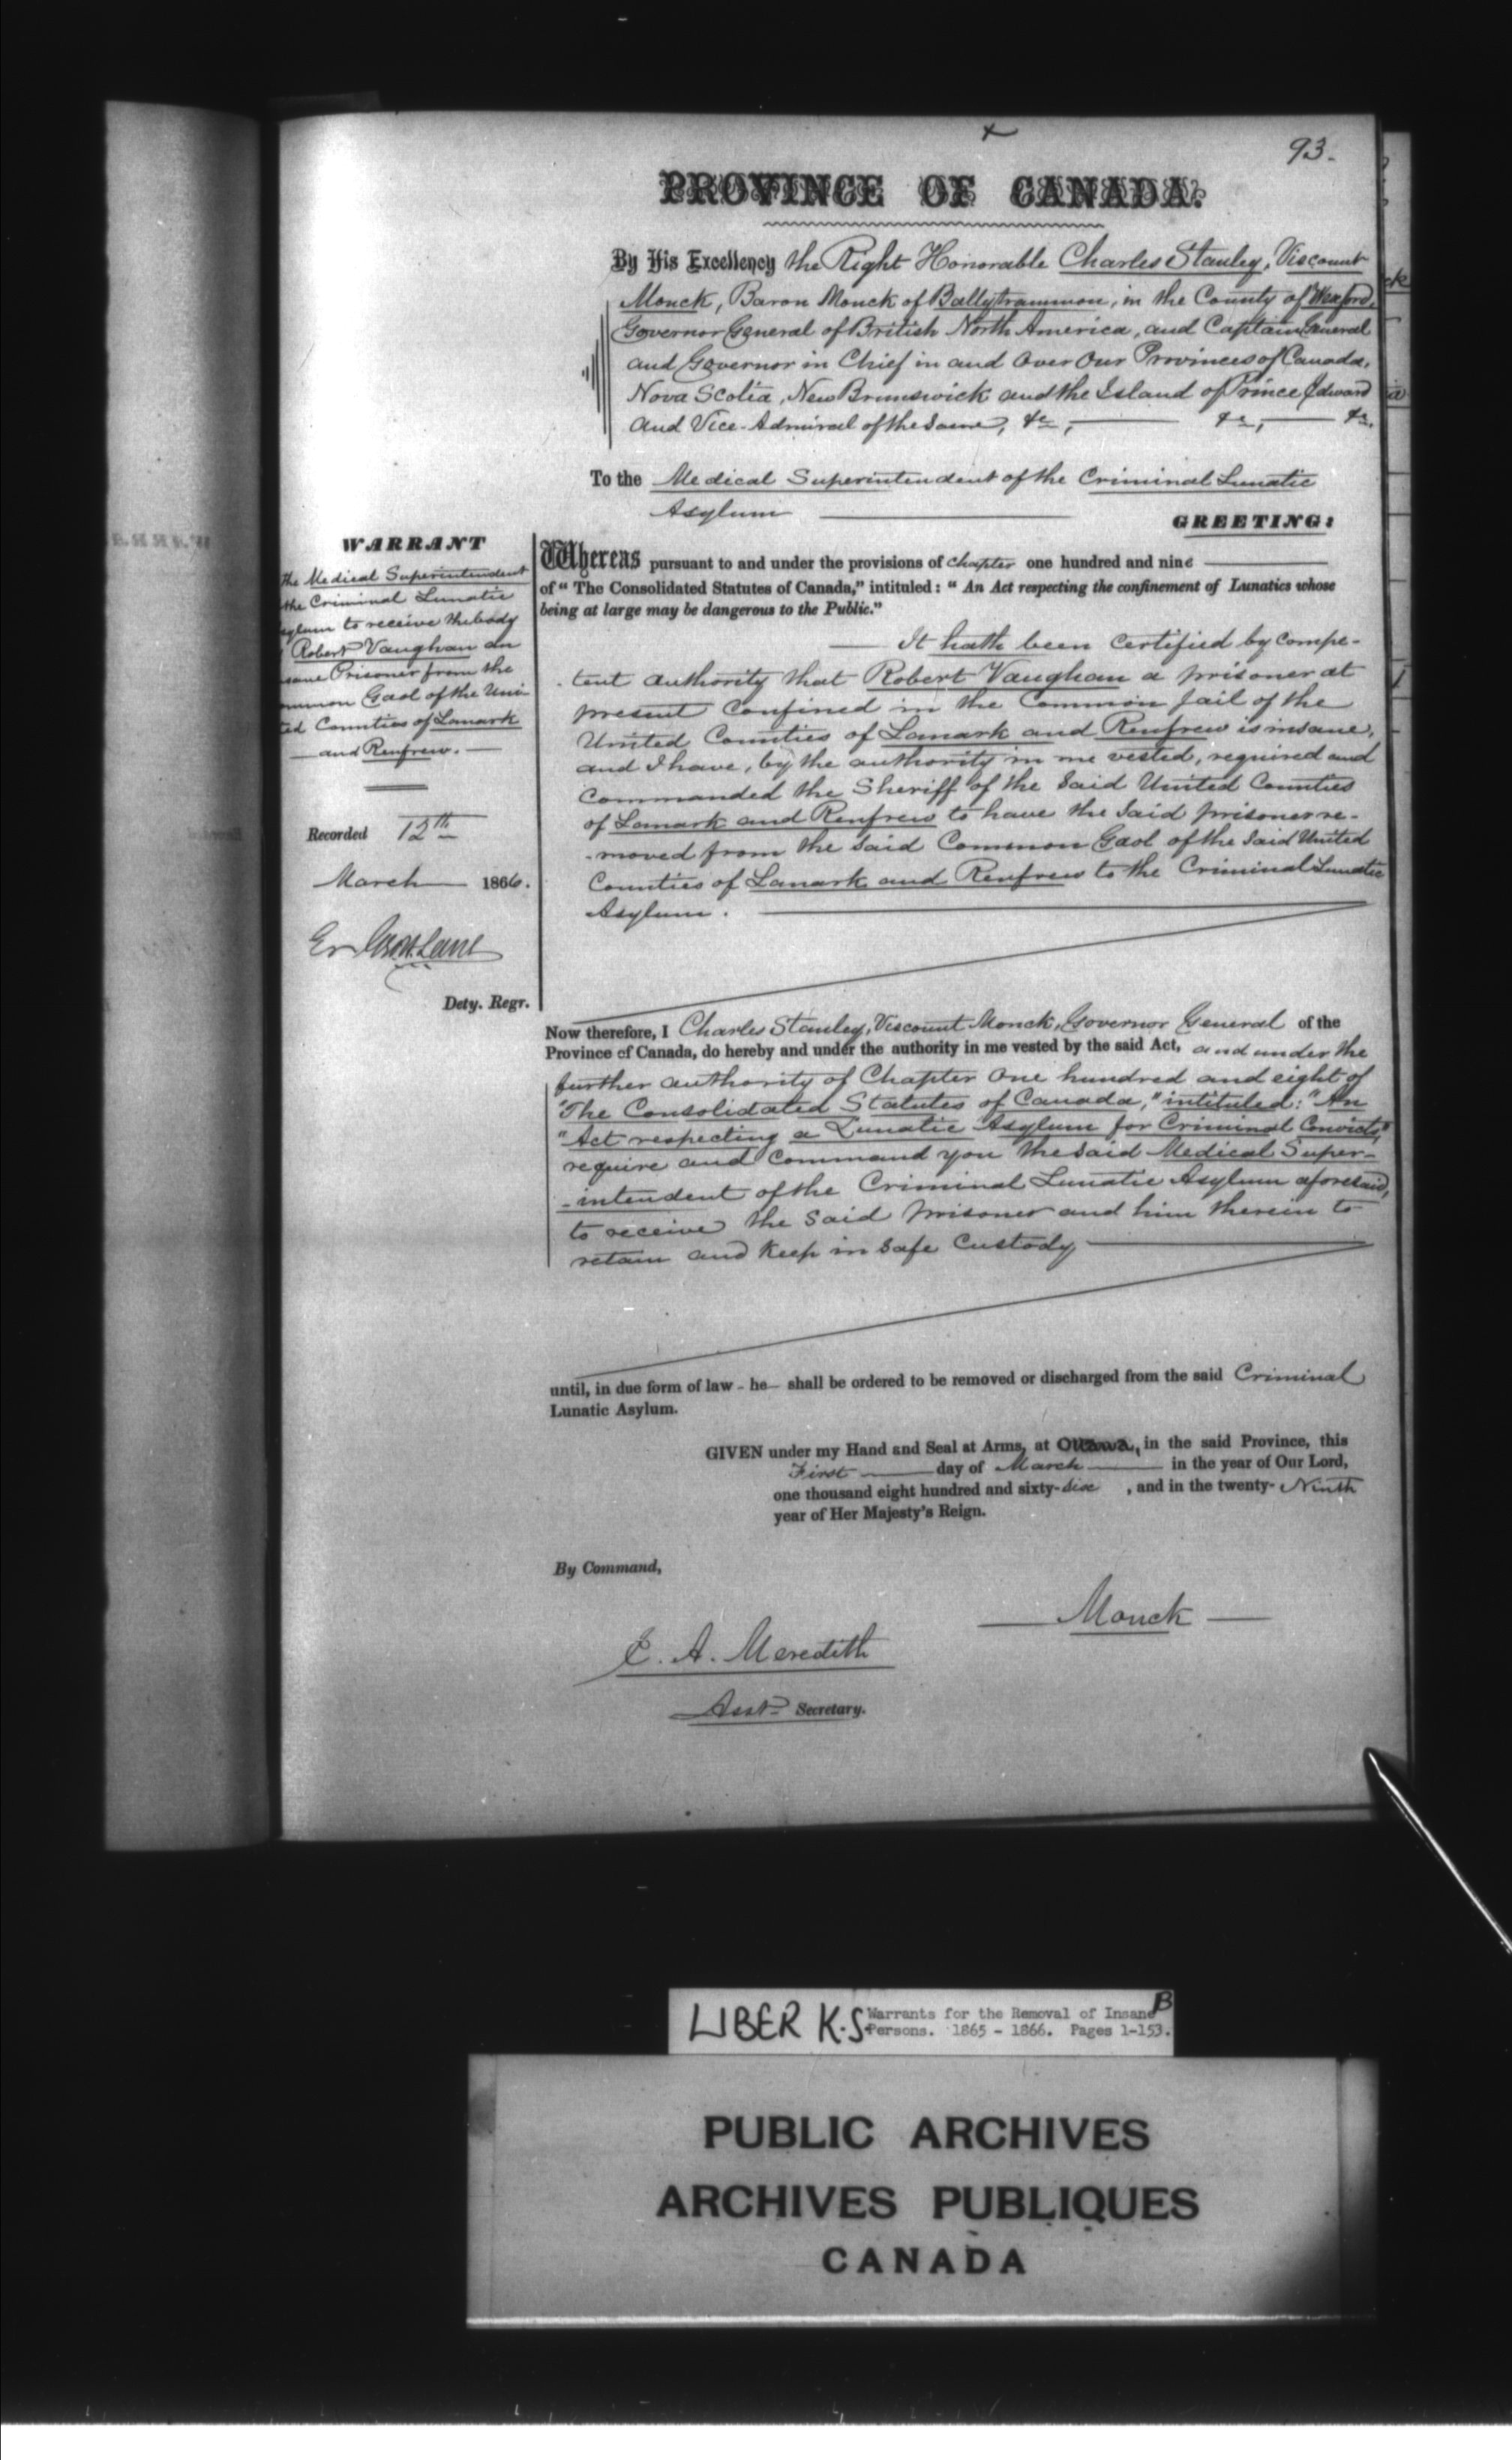 93.
PROVINCE OF CANADA.
By His Excellency the Right Honorable Charles Stanley, Viscount
Monck, Baron Monck of Ballytrammon, in the County of Wexford,
Governor General of British North America, and Captain General
and Governor in Chief in and over our Provinces of Canada,
Nova Scotia, New Brunswick and the Island of Prince Edward
and Vice-Admiral of the same, &c, &c, &c.
To the Medical Superintendent of the Criminal Lunatic
Asylum
GREETING:
WARRANT
the Medical Superintendent
the Criminal Lunatic
sylum to receive the body
Robert Vaughan an
sane Prisoner from the
ommon Gaol of the Uni-
ted Counties of Lanark
and Renfrew.
Recorded 12th
March 1866.
Dety. Regr.
Whereas pursuant to and under the provisions of chapter one hundred and nine
of "The Consolidated Statutes of Canada," intituled: "An Act respecting the confinement of Lunatics whose
being at large may be dangerous to the Public."
It hath been certified by compe-
-tent authority that Robert Vaughan a prisoner at
present confined in the Common Jail of the
United Counties of Lanark and Renfrew is insane,
and I have, by the authority in me vested, required and
commanded the Sheriff of the said United Counties
of Lanark and Renfrew to have the said prisoner re-
-moved from the said Common Gaol of the said United
Counties of Lanark and Renfrew to the Criminal Lunatic
Asylum.
Now therefore, I Charles Stanley, Viscount Monck, Governor General of the
Province of Canada, do hereby and under the authority in me vested by the said Act, and under the
further authority of Chapter One hundred and eight of
"The Consolidated Statutes of Canada," intituled: "An
"Act respecting a Lunatic Asylum for Criminal Convicts,"
require and command you the said Medical Super-
-intendent of the Criminal Lunatic Asylum aforesaid,
to receive the said prisoner and him therein to
retain and keep in safe custody
until, in due form of law - he - shall be ordered to be removed or discharged from the said Criminal
Lunatic Asylum.
GIVEN under my Hand and Seal at Arms, at Ottawa, in the said Province, this
First day of March in the year of Our Lord,
one thousand eight hundred and sixty-six, and in the twenty-Ninth
year of Her Majesty's Reign.
By Command,
Monck
E. A. Meredith
Asst. Secretary.
LIBER K.S. Warrants for the Removal of Insane B
Persons. 1865 - 1866. Pages 1-153.
PUBLIC ARCHIVES
ARCHIVES PUBLIQUES
CANADA